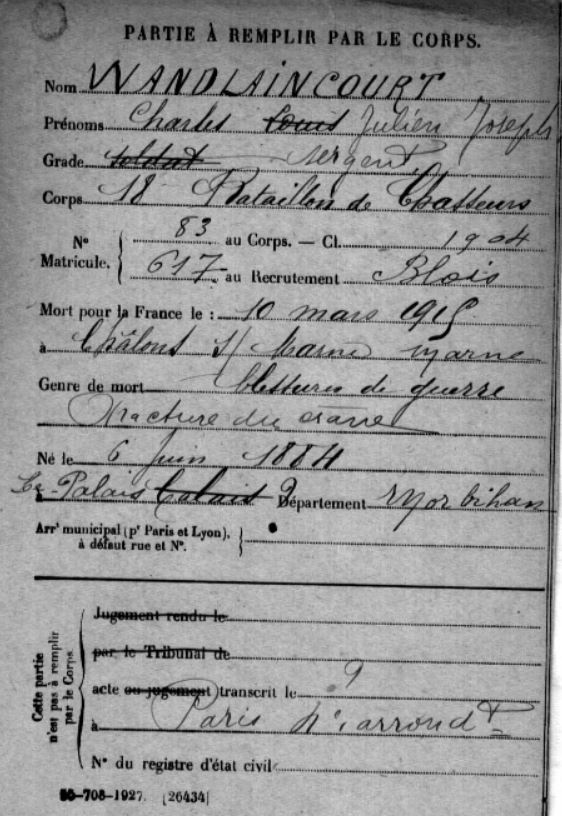 PARTIE À REMPLIR PAR LE CORPS.
Nom WANDLAINCOURT
Prénoms Charles Louis Julien Joseph
Grade soldat sergent
Corps 18 Bataillon de Chasseurs
N° Matricule. 83 au Corps. — Cl. 1904
617 au Recrutement Blois
Mort pour la France le : 10 mars 1915
à Châlons s/ Marne Marne
Genre de mort blessures de guerre
Fracture du crane
Né le 6 Juin 1884
Le Palais Calais ? Département Morbihan
Arrt municipal (pr Paris et Lyon),
à défaut rue et N°.
Cette partie n'est pas à remplir par le Corps.
Jugement rendu le
par le Tribunal de
acte ou jugement transcrit le
à Paris arrondt
N° du registre d'état civil
708-1927. [26434]